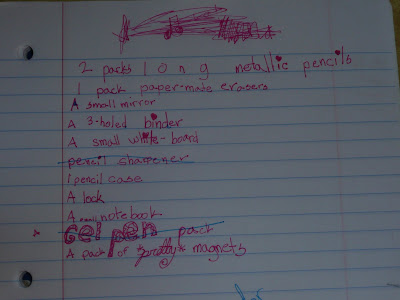 2 packs long metallic pencils
1 pack paper-mate erasers
A small mirror
A 3-holed binder
A small white-board
pencil sharpener
1 pencil case
A lock
A small notebook
Gel pen pack
A pack of magnets